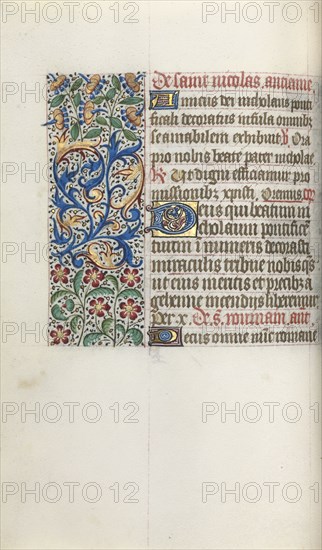 De saint nicolas. antiane.
Amicus dei nicholaus ponti
ficali decoratus infula omnibz
se amabilem exhibuit. V Ora
pro nobis beate pater nicholae.
R Ut digni efficiamur pro
missionibz xpisti. Oremus. oro
Deus qui beatum ni
cholaum pontifice
tuum innumeris decorasti
miraculis tribue nobis qs
ut eius meritis et precibz a
gehenne incendiis liberemur.
Per x. De s. romain. ant.
Deus omnium romane
PHOTO 12
PHOTO 12
PHOTO 12
PHOTO 12
PHOTO 12
PHOTO 12